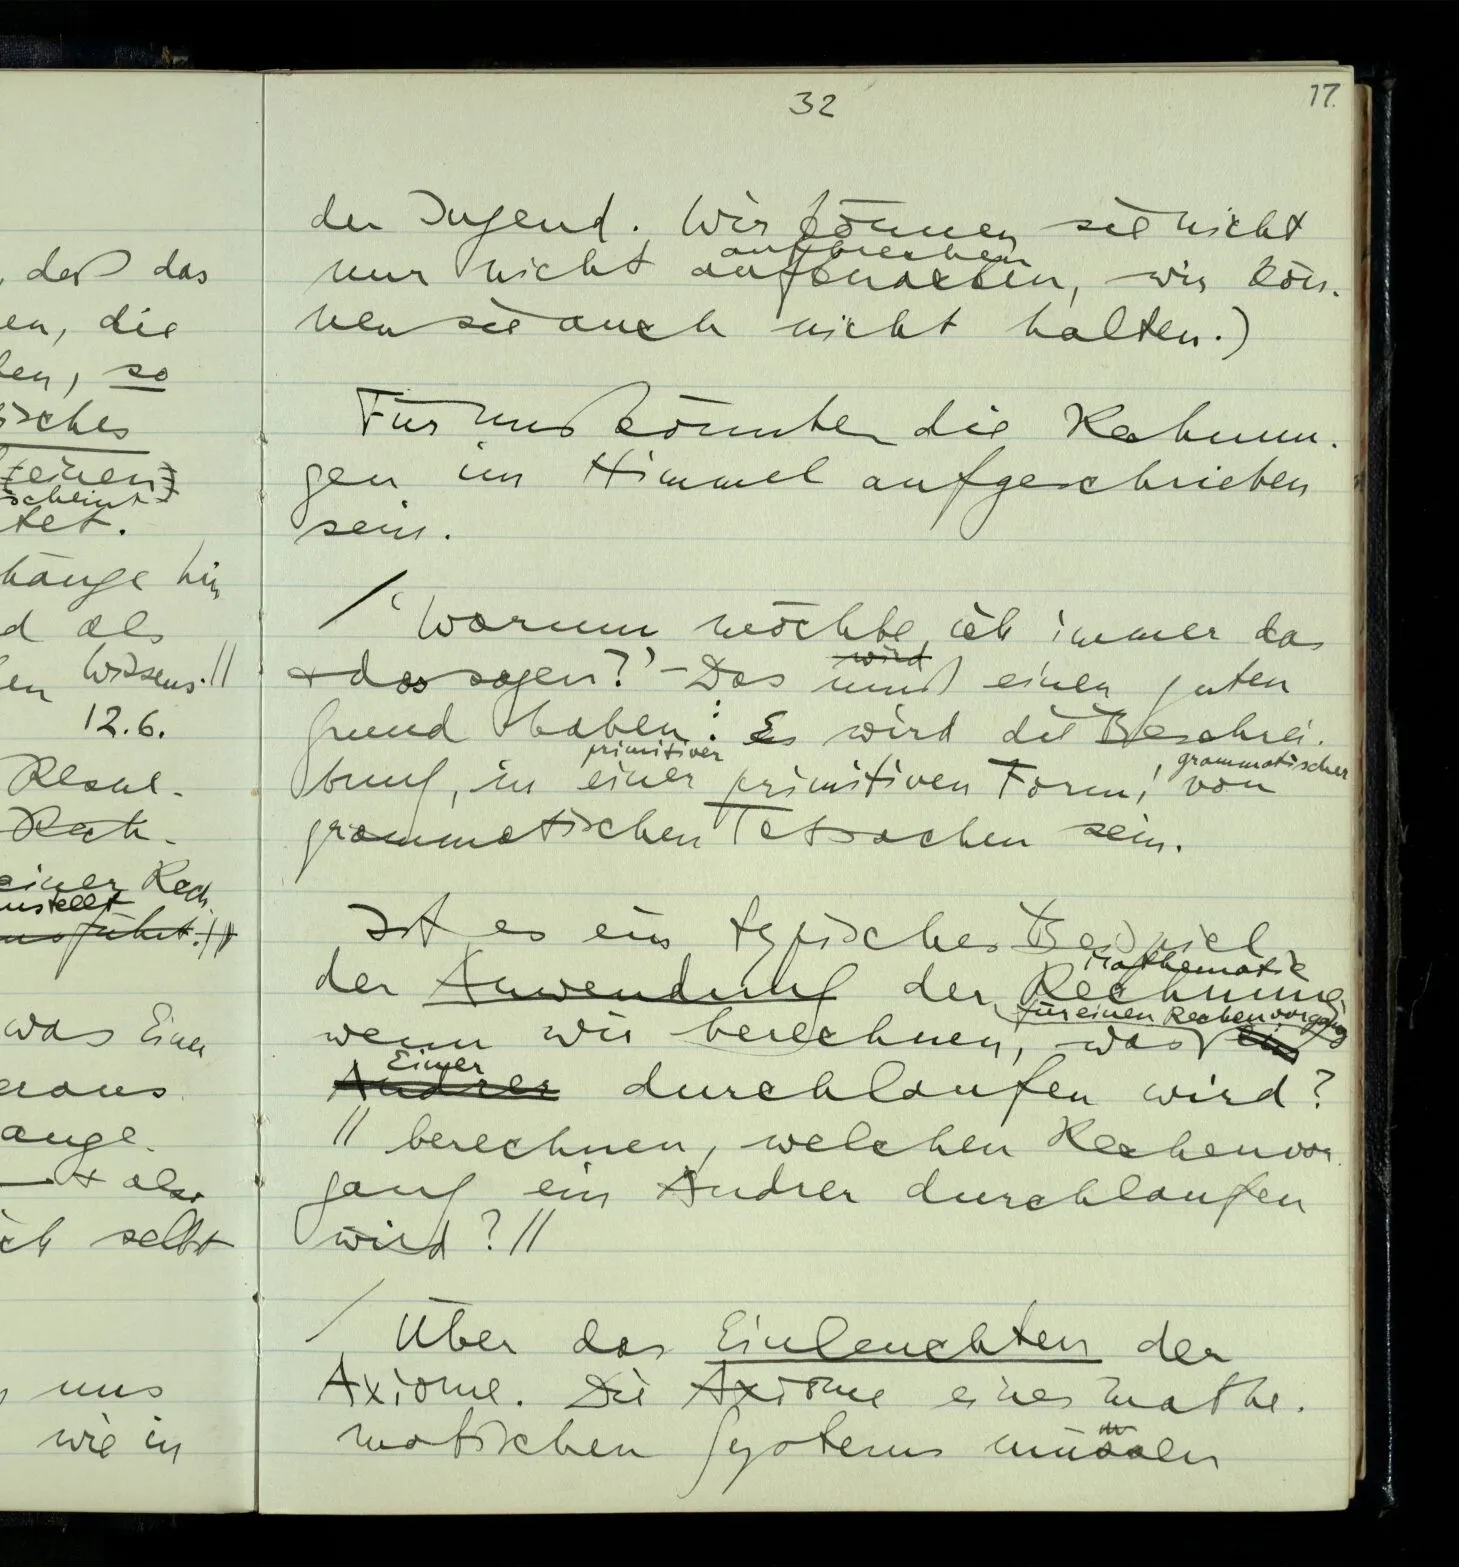 32
17.
der Jugend. Wir können sie nicht
aufbrechen
nur nicht aufmachen, wir kön-
nen sie auch nicht halten.)
Für uns könnten die Rechnun-
gen im Himmel aufgeschrieben
sein.
/ ‘Warum möchte ich immer das
wird
& das sagen?’ – Das muß einen guten
Grund haben: Es wird die Beschrei-
primitiver grammatischer
bung, in einer primitiven Form, von
grammatischen Tatsachen sein.
Ist es ein typisches Beispiel
Mathematik
der Anwendung der Rechnung
für einen Rechenvorgang
wenn wir berechnen, was ein
Einer
Andrer durchlaufen wird?
// berechnen, welchen Rechenvor-
gang ein Andrer durchlaufen
wird? //
/ Über das Einleuchten der
Axiome. Die Axiome eines mathe-
matischen Systems müssen
, daß das
en, die
en, so
isches
einen
scheint
tet.
hänge hin
d als
en Wissens. //
12.6.
Resul-
Rech-
einer Rech-
anstellt
ausführt. //
was Einer
eraus
ange-
& also
ich selbst
uns
wie in